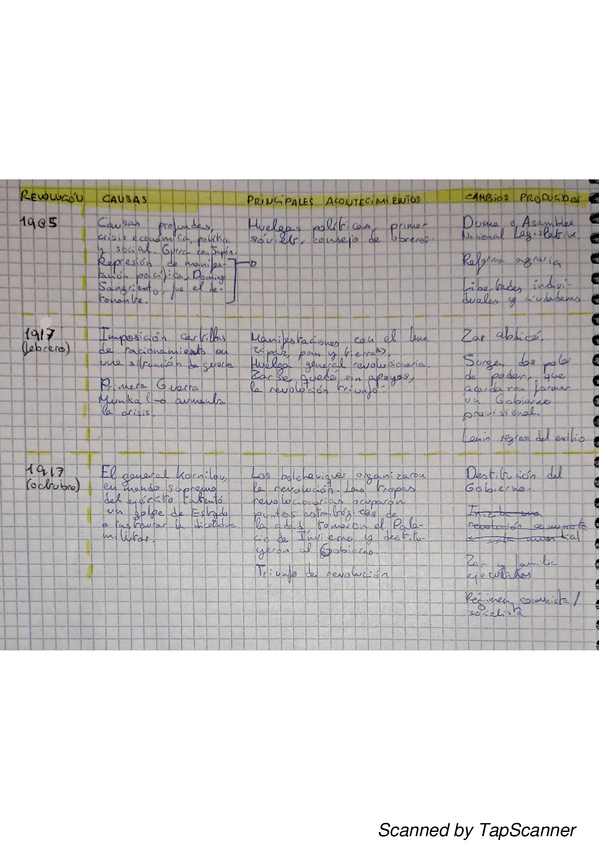 REVOLUCIÓN CAUSAS PRINCIPALES ACONTECIMIENTOS CAMBIOS PRODUCIDOS
1905
Causas profundas,
crisis económica, política
y social. Guerra con Japón.
Represión de manifes-
tación pacífica, Domingo
Sangriento, fue el de-
tonante.
Huelgas políticas, primer
soviets, consejo de obreros
Duma o Asamblea
Nacional Legislativa
Reforma agraria
Libertades indivi-
duales y ciudadanas
1917
(febrero)
Imposición cartillas
de racionamiento en
una situación de guerra
Primera Guerra
Mundial → aumenta
la crisis.
Manifestaciones con el lema
"paz, pan y tierra",
Huelga general revolucionaria.
Zar se quedó sin apoyos,
la revolución triunfó.
Zar abdicó.
Surgen dos polos
de poder, que
acordaron formar
un Gobierno
provisional.
Lenin regresa del exilio
1917
(octubre)
El general Kornilov,
en mando supremo
del ejército intentó
un golpe de Estado
e instaurar la dictadura
militar.
Los bolcheviques organizaron
la revolución. Las tropas
revolucionarias ocuparon
puntos estratégicos de
la ciudad, tomaron el Pala-
cio de Invierno y destitu-
yeron al Gobierno.
Triunfo de revolución
Destitución del
Gobierno.
revolución
Zar y familia
ejecutados
Régimen comunista /
socialista
Scanned by TapScanner